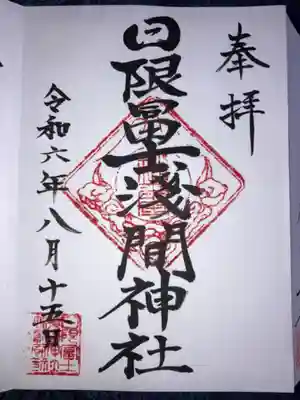 奉拝
日限冨士浅間神社
令和六年八月十五日